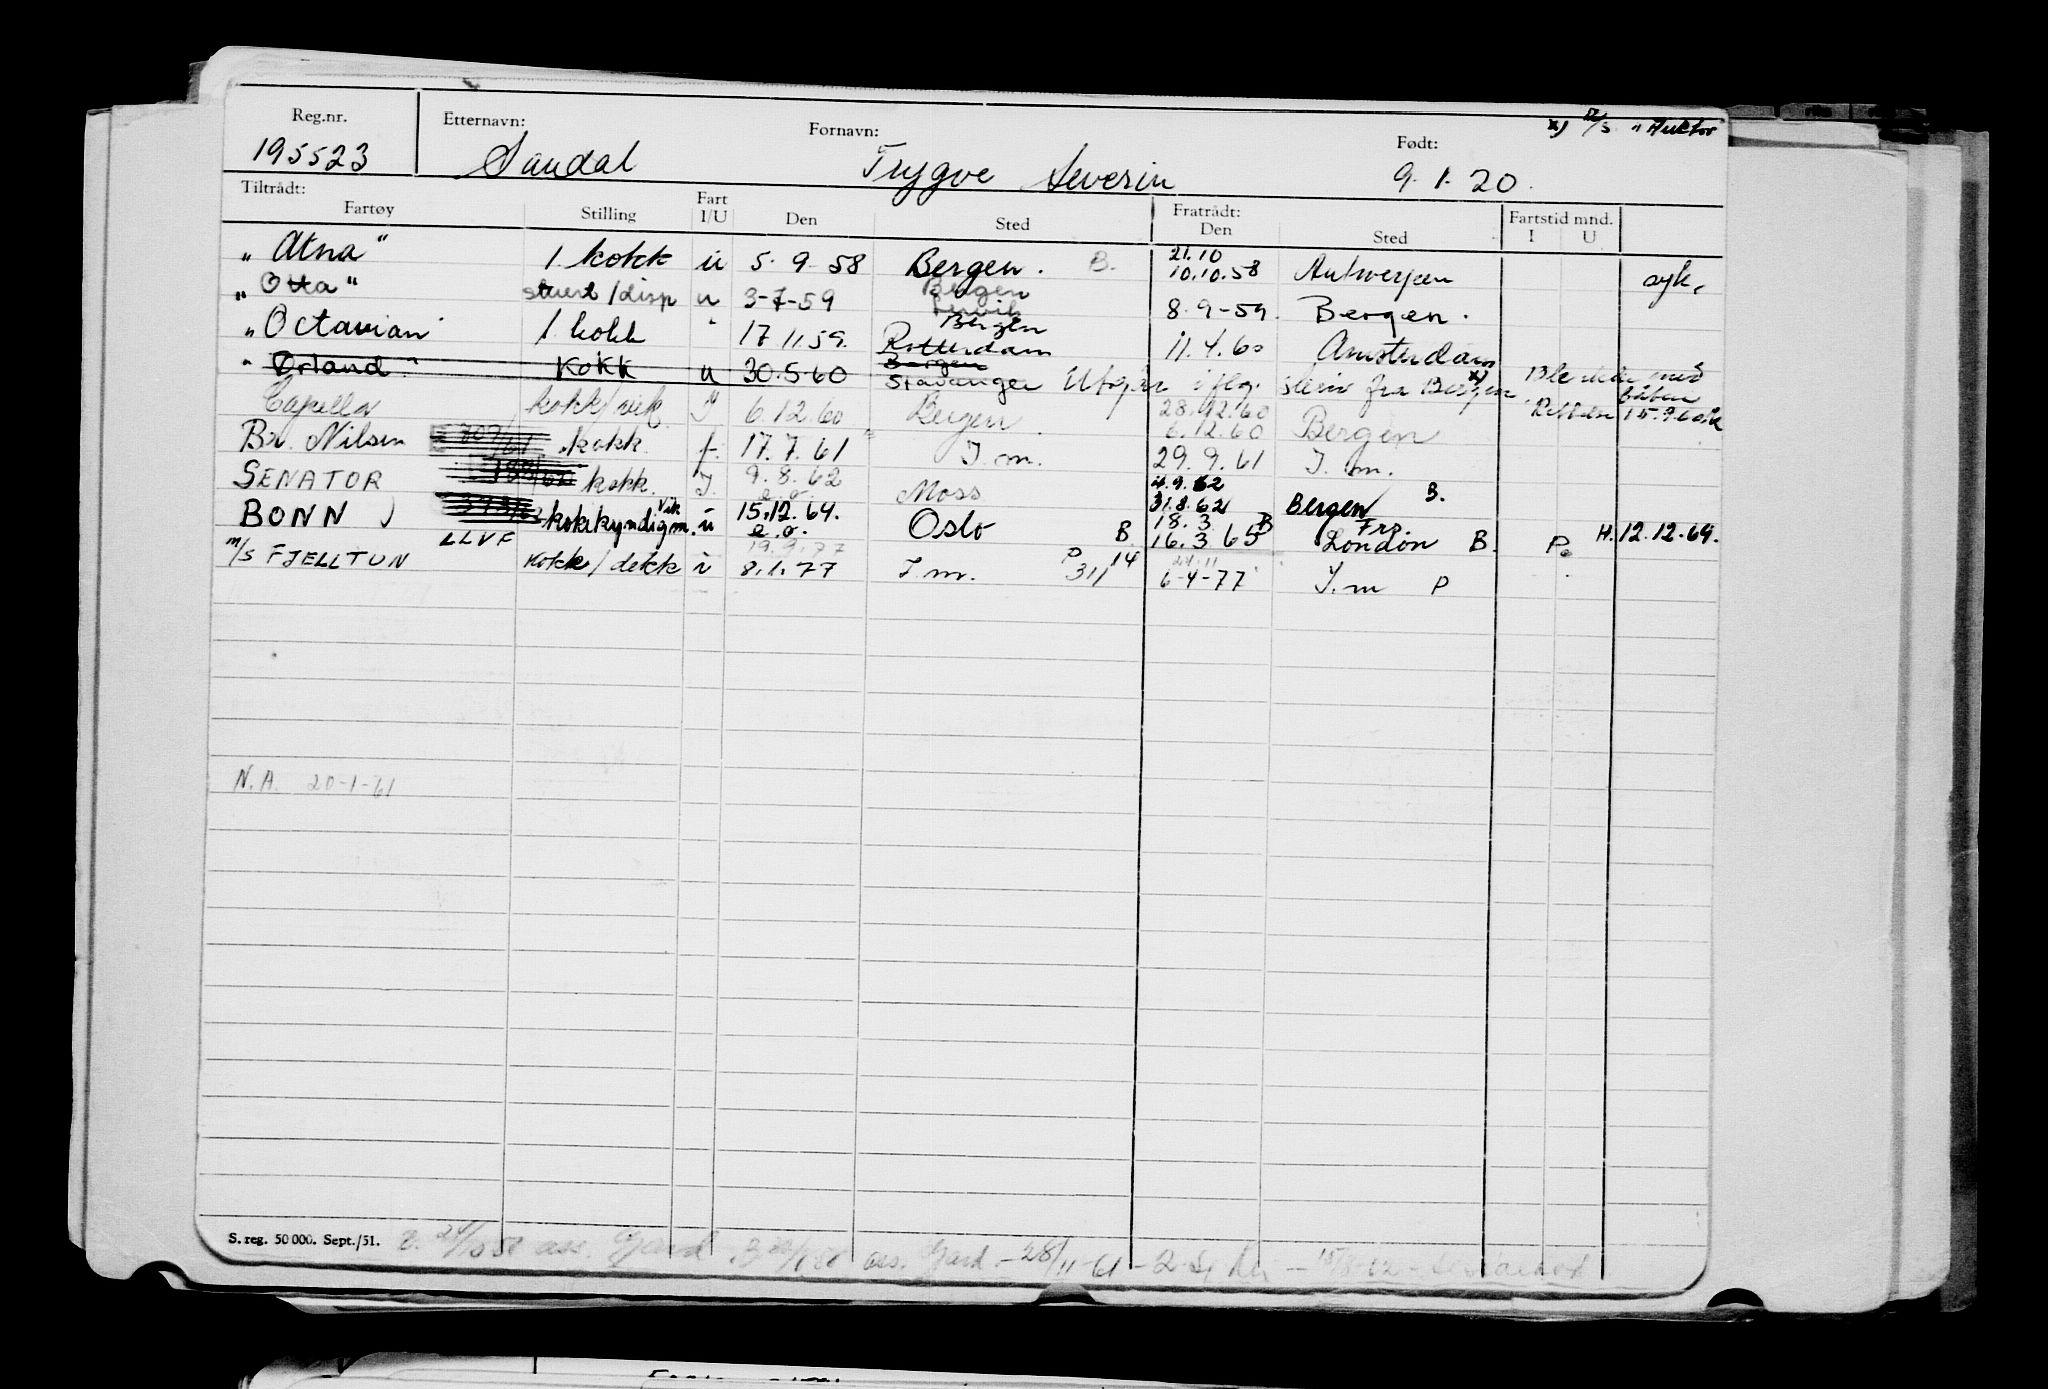 x) D/S "Auktor
Reg.nr. Etternavn: Fornavn: Født:
195523 Sandal Trygve Severin 9.1.20.
Tiltrådt: Fratrådt:
Fartøy Stilling Fart I/U Den Sted Den Sted Fartstid mnd. I U
"Atna" 1. kokk u 5.9.58 Bergen. B. 21.10 10.10.58 Antwerpen syk.
"Otta" stuert/disp u 3-7-59 Bergen 8.9-59. Bergen.
"Octavian" 1. kokk " 17.11.59. Bergen Rotterdam 11.4.60 Amsterdam
"Ørland" Kokk u 30.5.60 Bergen Stavanger Utgår iflg. skriv fra Bergen x) 15.9.60
Capella kokk/vik I 6.12.60 Bergen 28.12.60 6.12.60 Bergen
Br. Nilsen kokk. f. 17.7.61 I.m. 29.9.61 I.m.
SENATOR kokk. I. 9.8.62 e.o. Moss 4.9.62 31.8.62 Bergen B.
BONN LLVF kokkyndig m. Vik u 15.12.64. e.o. Oslo B. 18.3. 16.3.65 B Fra London B. P. H. 12.12.64.
M/S FJELLTUN kokk/dekk i 19.9.77 8.1.77 I.m. P 31/ 14 24.11 6-4-77 I.m P
N.A. 20-1-61
S. reg. 50 000. Sept./51. ass. Gard ass. Gard - 28/11-61 -